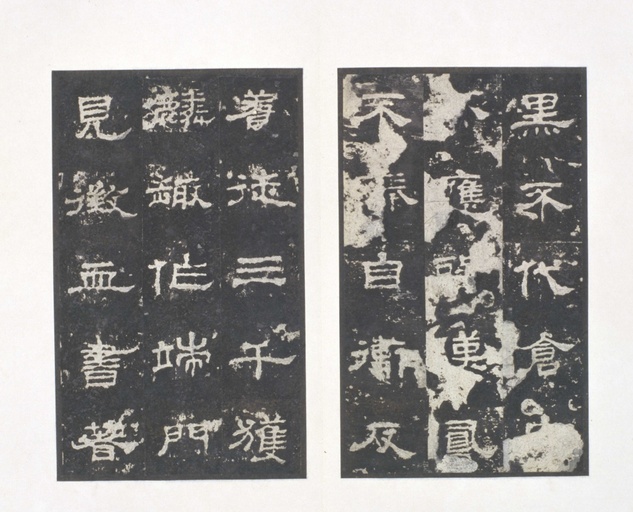 黑不代倉
應聘鳳
不臻自衛反
養徒三千獲
麟趣作端門
見徵血書著